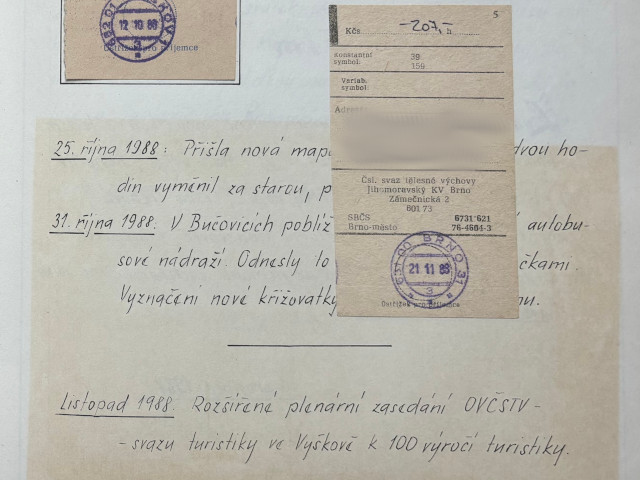 682 01 VYŠKOV 1
12.10.88
3
Ústřižek pro příjemce
5
Kčs -207,- h
konstantní symbol: 39 / 159
Variab. symbol:
25. října 1988: Přišla nová mapa dvou ho-
din vyměnil za starou, p
31. října 1988: V Bučovicích poblíž autobu-
sové nádraží. Odnesly to čkami.
Vyznačení nové křižovatky mu.
Čsl. svaz tělesné výchovy
Jihomoravský KV Brno
Zámečnická 2
801 73
SBČS 6731 621
Brno-město 76-4604-3
631 00 BRNO 31
21.11.88
3
Ústřižek pro příjemce
Listopad 1988. Rozšířené plenární zasedání OVČSTV -
- svazu turistiky ve Vyškově k 100 výročí turistiky.